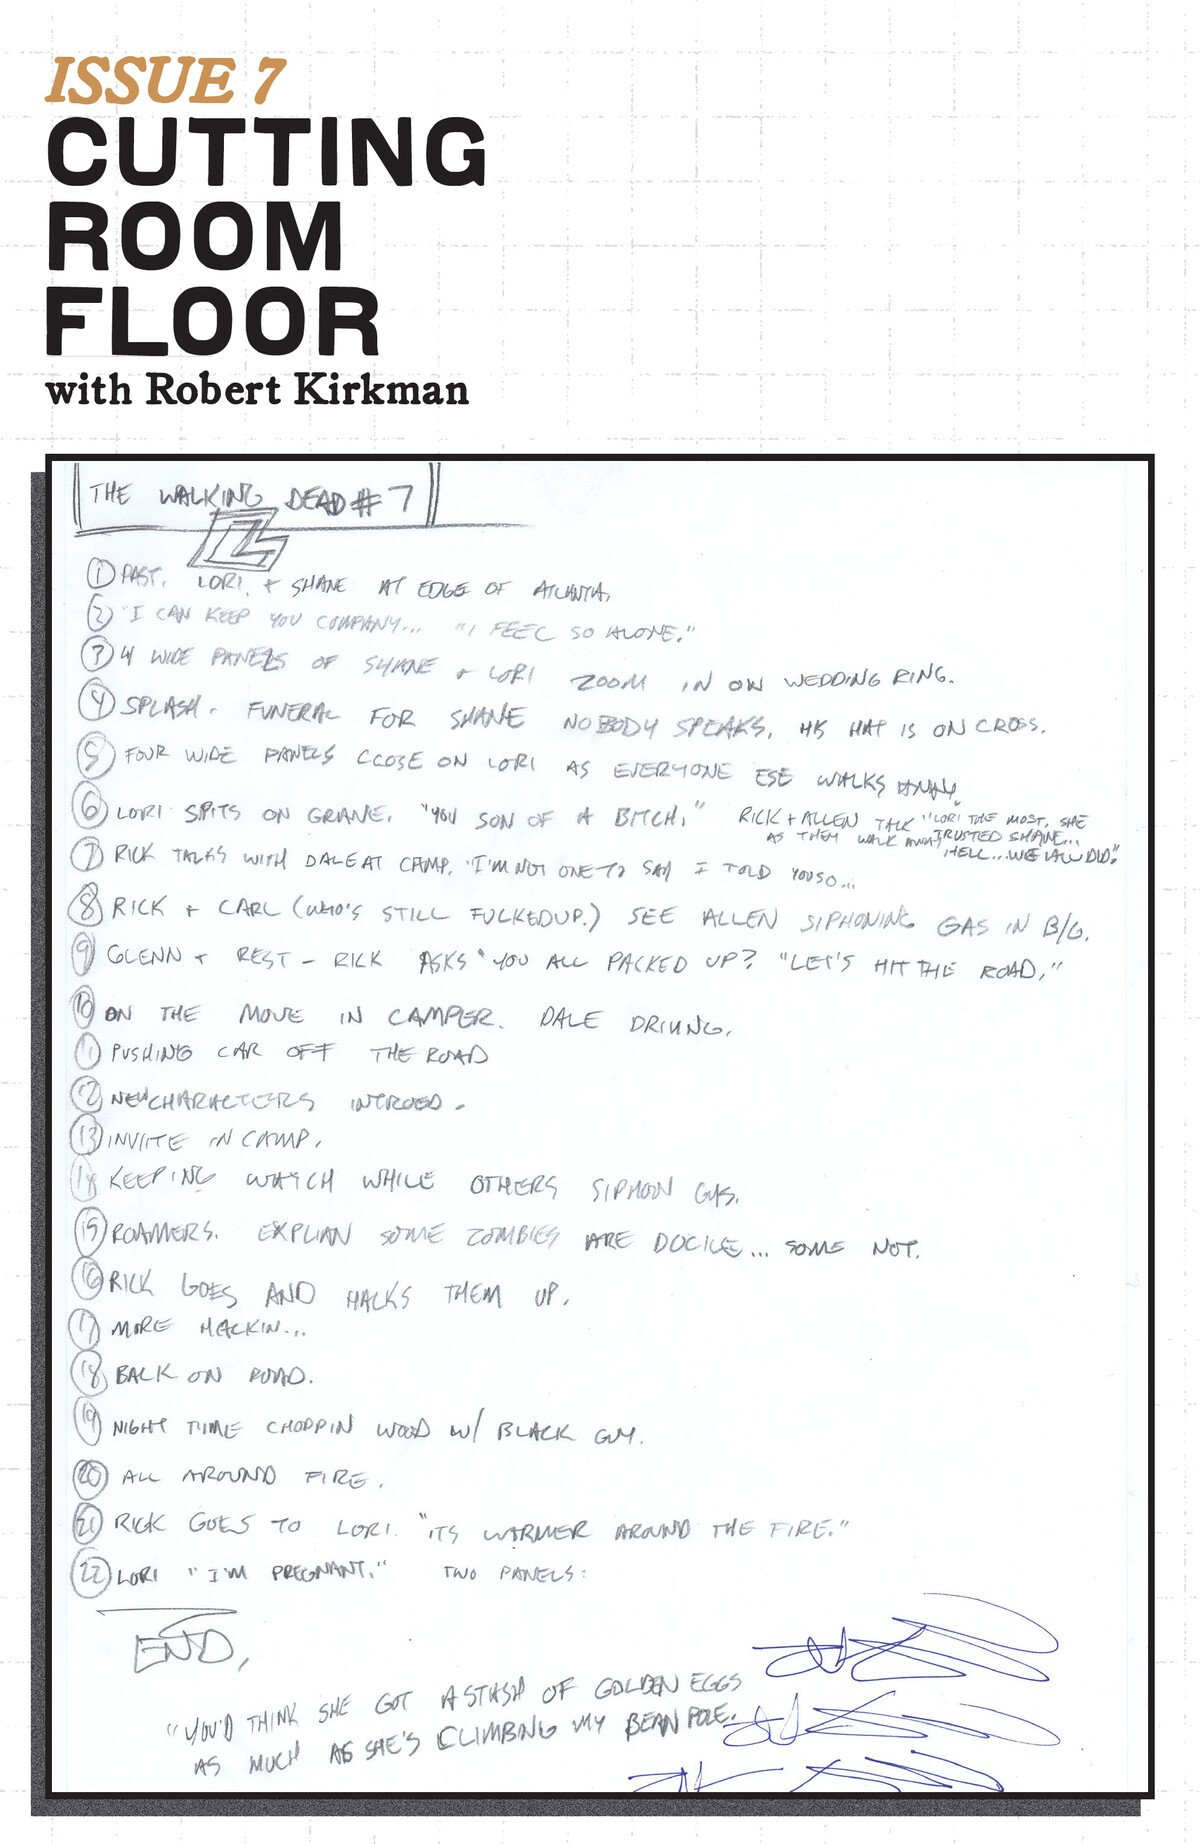 ISSUE 7
CUTTING
ROOM
FLOOR
with Robert Kirkman
THE WALKING DEAD #7
① PAST. LORI + SHANE AT EDGE OF ATLANTA.
② "I CAN KEEP YOU COMPANY... "I FEEL SO ALONE."
③ 4 WIDE PANELS OF SHANE + LORI ZOOM IN ON WEDDING RING.
④ SPLASH. FUNERAL FOR SHANE NOBODY SPEAKS. HIS HAT IS ON CROSS.
⑤ FOUR WIDE PANELS CLOSE ON LORI AS EVERYONE ESE WALKS AWAY.
⑥ LORI SPITS ON GRAVE. "YOU SON OF A BITCH." RICK + ALLEN TALK "LORI THE MOST. SHE
AS THEY WALK AWAY TRUSTED SHANE...
HELL... WE ALL DID."
⑦ RICK TALKS WITH DALE AT CAMP. "I'M NOT ONE TO SAY I TOLD YOU SO...
⑧ RICK + CARL (WHO'S STILL FUCKEDUP.) SEE ALLEN SIPHONING GAS IN B/G.
⑨ GLENN + REST - RICK ASKS "YOU ALL PACKED UP? "LET'S HIT THE ROAD."
⑩ ON THE MOVE IN CAMPER. DALE DRIVING.
⑪ PUSHING CAR OFF THE ROAD
⑫ NEW CHARACTERS INTROED.
⑬ INVITE IN CAMP.
⑭ KEEPING WATCH WHILE OTHERS SIPHON GAS.
⑮ ROAMERS. EXPLIAN SOME ZOMBIES ARE DOCILE... SOME NOT.
⑯ RICK GOES AND HACKS THEM UP.
⑰ MORE HACKIN...
⑱ BACK ON ROAD.
⑲ NIGHT TIME CHOPPIN WOOD W/ BLACK GUY.
⑳ ALL AROUND FIRE.
㉑ RICK GOES TO LORI. "ITS WARMER AROUND THE FIRE."
㉒ LORI "I'M PREGNANT." TWO PANELS:
END,
"YOU'D THINK SHE GOT A STASH OF GOLDEN EGGS
AS MUCH AS SHE'S CLIMBING MY BEAN POLE.